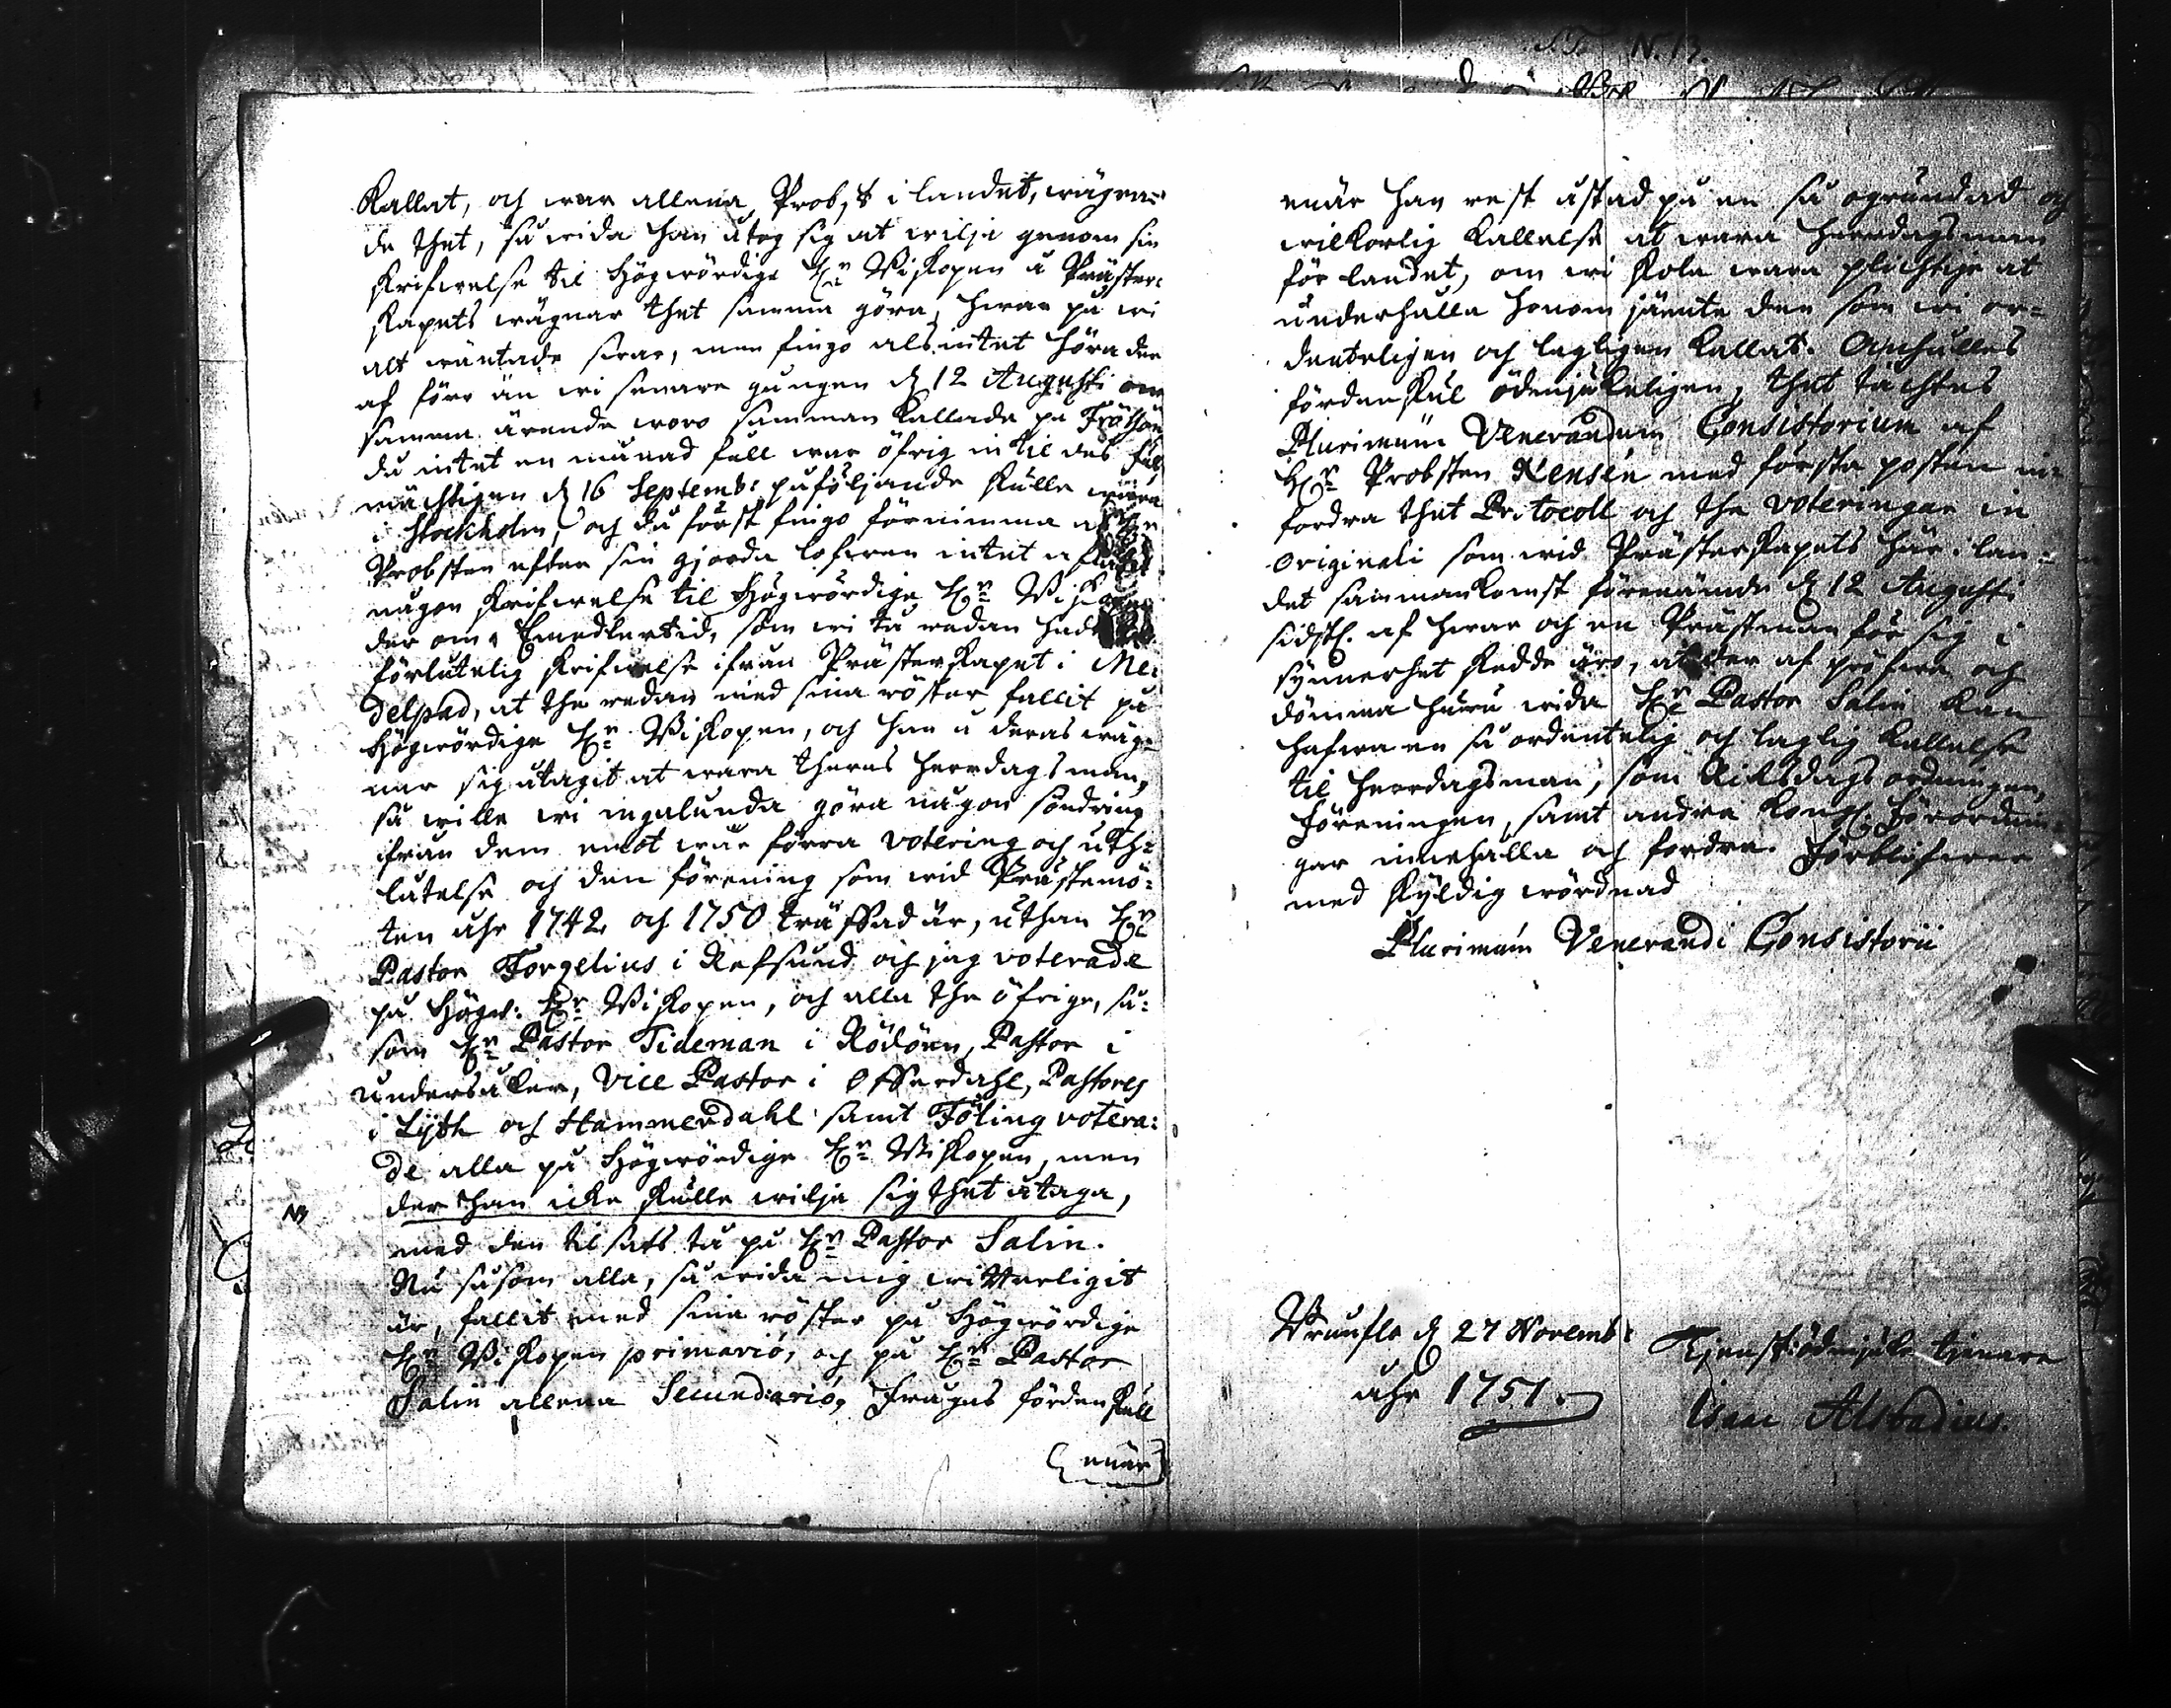 N. 13.
Kallat, och war allena Probst i landet, wägra=
de thet, så wida han åtog sig at wilja genom sin
skrifwelse til Högwördige Hr Biskopen å Präster=
skapets wägnar thet samma göra, hwar på wi
alt wäntade swar, men fingo als intet höra der
af förr än wi senare gången d 12 Augusti om
samma ärende woro samman kallade på Frösön
då intet en månad full war öfrig in til des full
mächtigen d 16 Septemb: påföljande skulle wara
i Stockholm, och då först fingo förnimma at Hr
Probsten efter sin gjorda lofwen intet aflåtit
någon skrifwelse til Högwördige Hr Biskopen
der om. Emedlertid, som wi tå redan hade
förlåtelig skrifwelse ifrån Prästerskapet i Me=
delpad, at the redan med sina röster fallit på
Högwördige Hr Biskopen, och han å deras wäg=
nar sig åtagit at wara theras herredagsman,
så wille wi ingalunda göra någon söndring
ifrån dem emot wår förra votering och uth=
låtelse och den förening som wid Prästemö=
ten åhr 1742 och 1750 träffad är, uthan Hr
Pastor Torgelius i Refsund och jag voterade
på Högw: Hr Biskopen, och alla the öfrige, så=
som Hr Pastor Tideman i Rödöen, Pastor i
Undersåker, Vice Pastor i Offerdahl, Pastores
i Lijth och Hammerdahl samt Föling votera=
de alla på Högwördige Hr Biskopen, men
NB der han icke skulle wilja sig thet åtaga,
med den tilsats tå på Hr Pastor Salin.
Nu såsom alla, så wida mig witterligit
är, fallit med sina röster på Högwördige
Hr Biskopen primariò, och på Hr Pastor
Salin allena Secundariò, Frågas fördenskull
enär
enär han rest åstad på en så ogrundad och
wilkorlig kallelse at wara herredagsman
för landet, om wi skola wara plichtige at
underhålla honom jämte den som wi or=
denteligen och lagligen kallat. Anhålles
fördenskul ödmjukeligen, thet täcktes
Plurimùm Venerandum Consistorium af
Hr Probsten Kensén med första posten in=
fordra thet Protocoll och the voteringar in
originali som wid Prästerskapets här i lan=
det sammankomst förenämde d 12 Augusti
sidstl. af hwar och en Prästman för sig i
synnerhet skedde äro, at der af pröfwa och
dömma huru wida Hr Pastor Salin kan
hafwa en så ordentelig och laglig kallelse
til herredagsman, som Riksdags ordningen,
föreningen, samt andra Kongl. Förordnin=
gar innehålla och fordra. Förblifwer
med skyldig wördnad
Plurimùm Venerandi Consistorii
Brunflo d 27 Novemb:
åhr 1751.
Tjenstödmjuke tjenare
Isaac Alstadius.